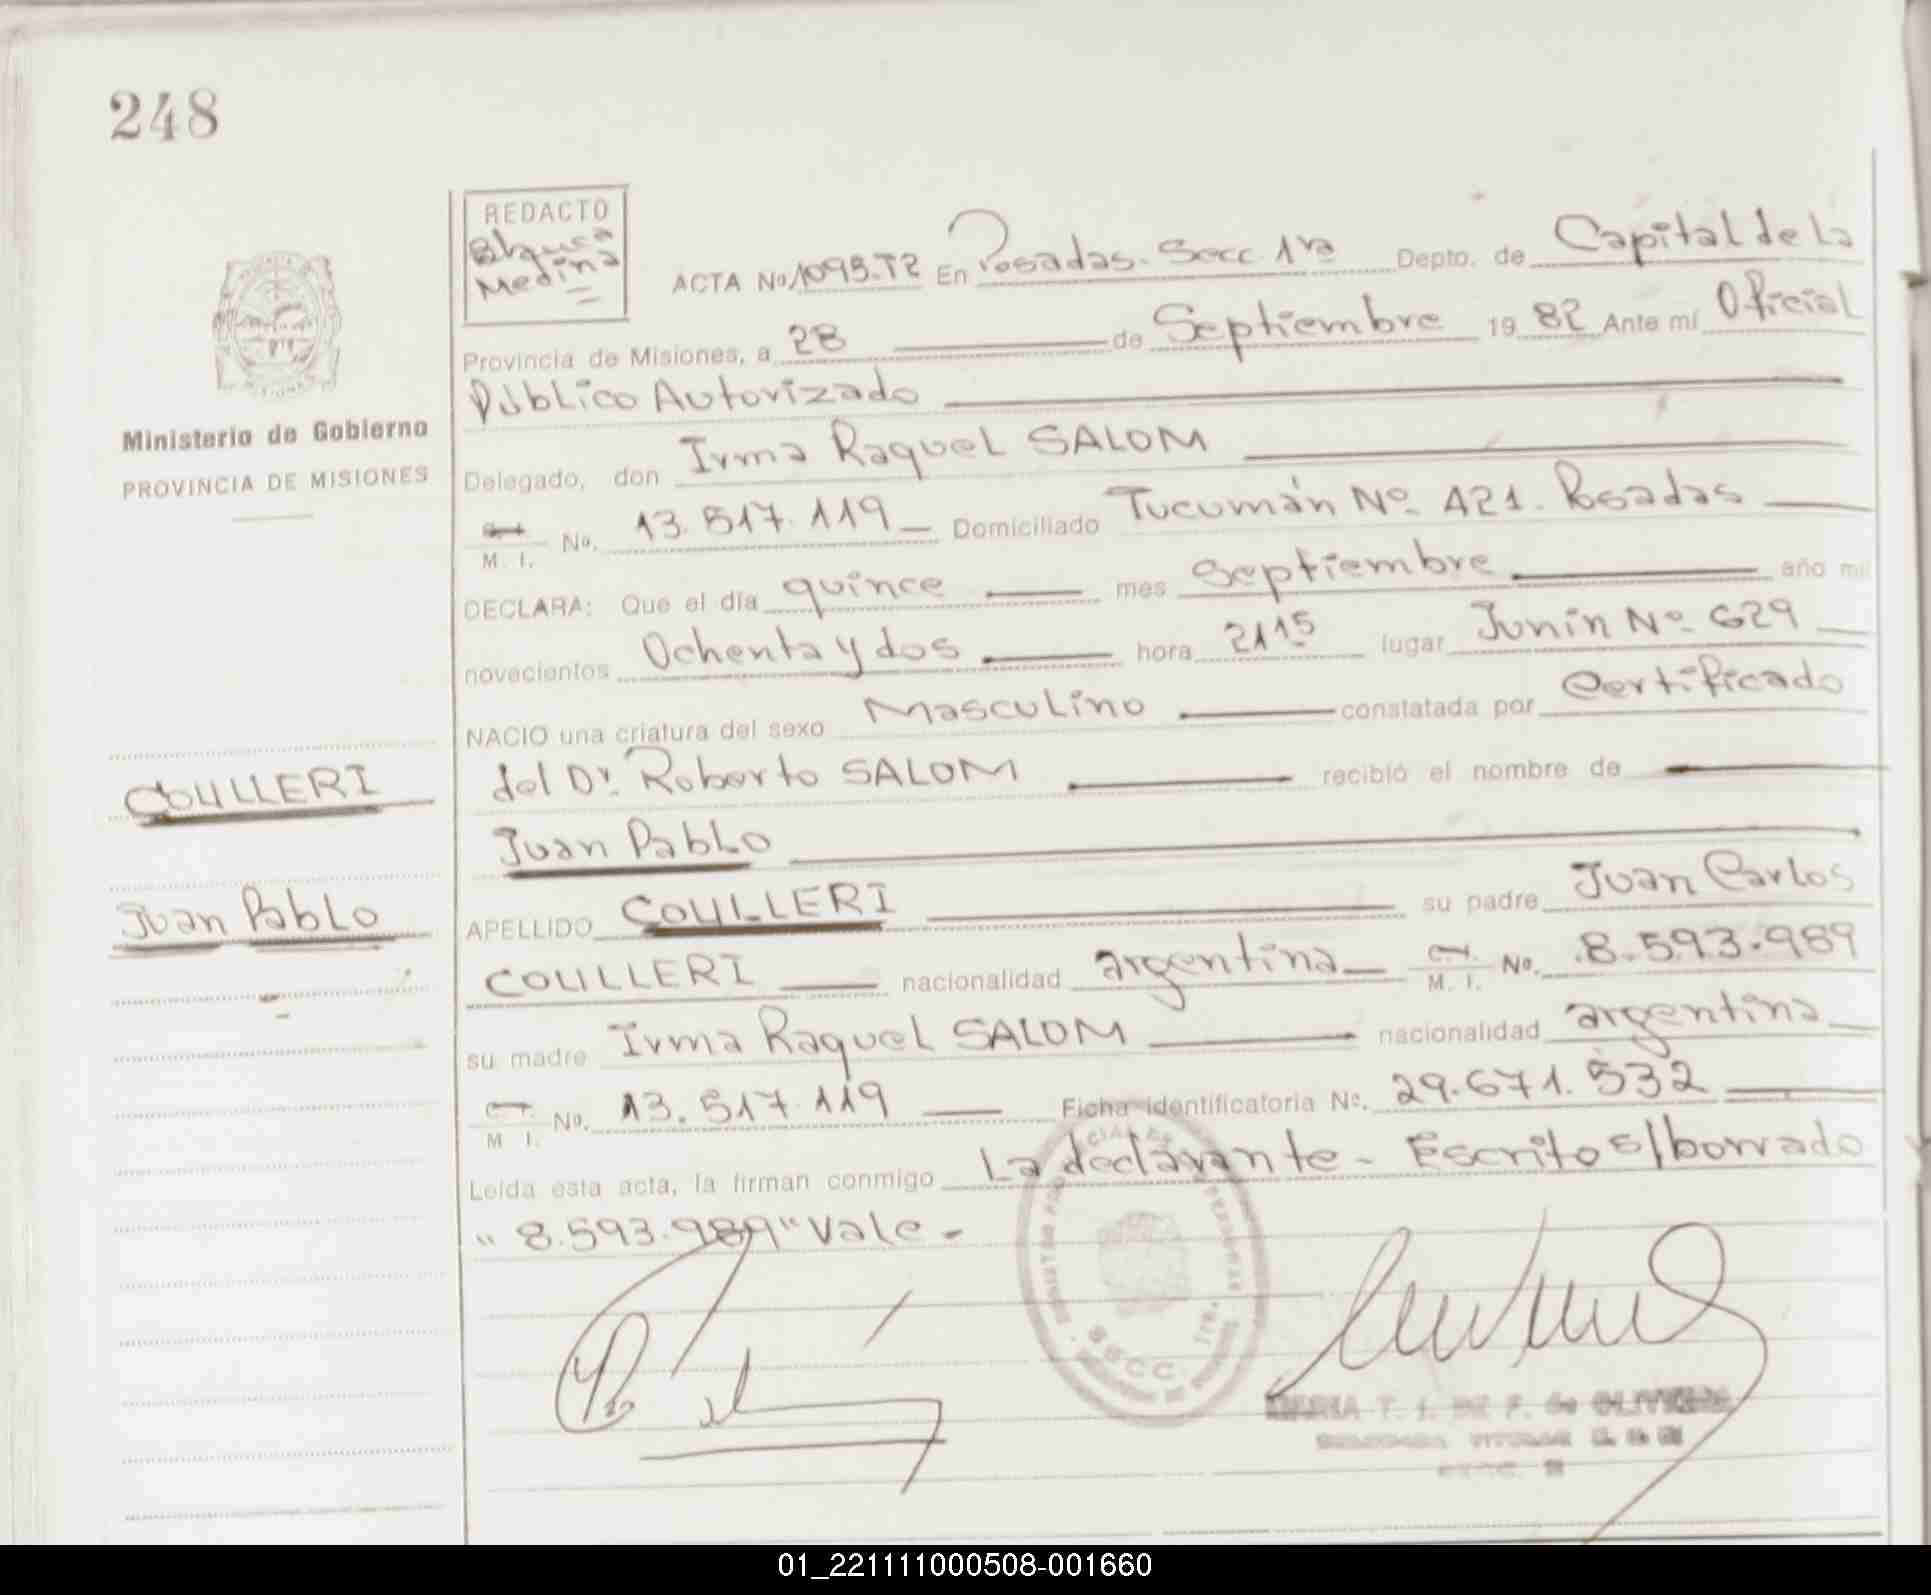 248
REDACTO
Blanca
Medina
ACTA Nº 1095.T2 En Posadas. Secc. 1ra Depto. de Capital de La
Provincia de Misiones, a 28 de Septiembre 19 82 Ante mí Oficial
Público Autorizado
Ministerio de Gobierno
PROVINCIA DE MISIONES
Delegado, don Irma Raquel SALOM
M. I. No. 13.517.119 Domiciliado Tucumán Nº 421. Posadas
DECLARA: Que el día quince mes Septiembre año mil
novecientos Ochenta y dos hora 21 15 lugar Junín Nº 629
NACIO una criatura del sexo Masculino constatada por Certificado
del Dr. Roberto SALOM recibió el nombre de
COULLERI
Juan Pablo
Juan Pablo
APELLIDO COULLERI su padre Juan Carlos
COULLERI nacionalidad argentina M. I. No. 8.593.989
su madre Irma Raquel SALOM nacionalidad argentina
M I. No. 13.517.119 Ficha identificatoria No. 29.671.532
Leída esta acta, la firman conmigo La declarante - Escrito s/borrado
"8.593.989" Vale -
SECC. 1ra.
MARIA T. I. DE F. de OLIVEIRA
01_221111000508-001660